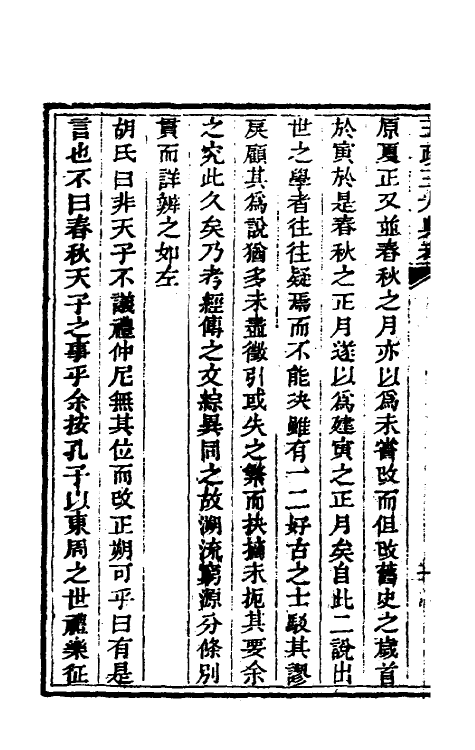 原夏正又並春秋之月亦以爲未嘗改而但改舊史之歲首
於寅於是春秋之正月遂以爲建寅之正月矣自此二說出
世之學者往往疑焉而不能決雖有一二好古之士駁其謬
戾顧其爲說猶多未盡徵引或失之繁而抉摘未扼其要余
之究此久矣乃考經傳之文綜異同之故溯流窮源分條別
貫而詳辨之如左
胡氏曰非天子不議禮仲尼無其位而改正朔可乎曰有是
言也不曰春秋天子之事乎余按孔子以東周之世禮樂征